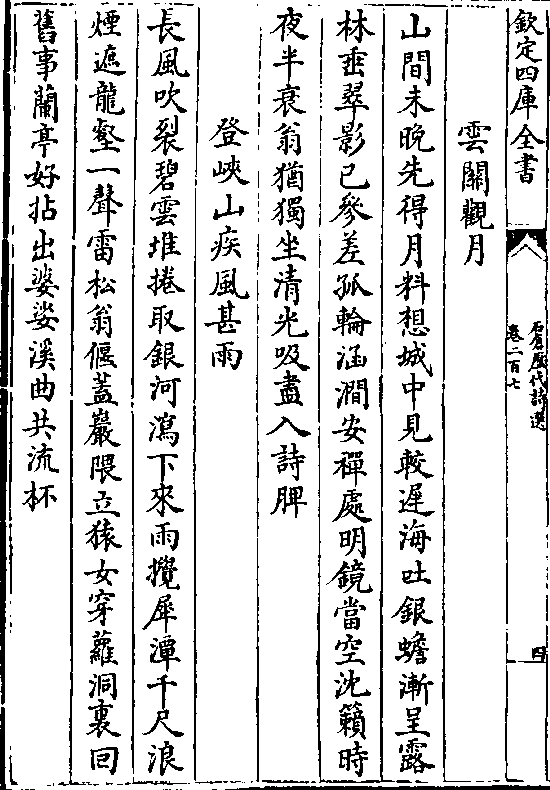 欽定四庫全書
石倉歷代詩選
卷二百七
四
雲關觀月
山間未晚先得月料想城中見較遲海吐銀蟾漸呈露
林垂翠影已參差孤輪涵澗安禪處明鏡當空沈籟時
夜半衰翁猶獨坐清光吸盡入詩脾
登峽山疾風甚雨
長風吹裂碧雲堆捲取銀河瀉下來雨攪犀潭千尺浪
煙遮龍壑一聲雷松翁偃蓋巖隈立猿女穿蘿洞裏回
舊事蘭亭好拈出婆娑溪曲共流杯